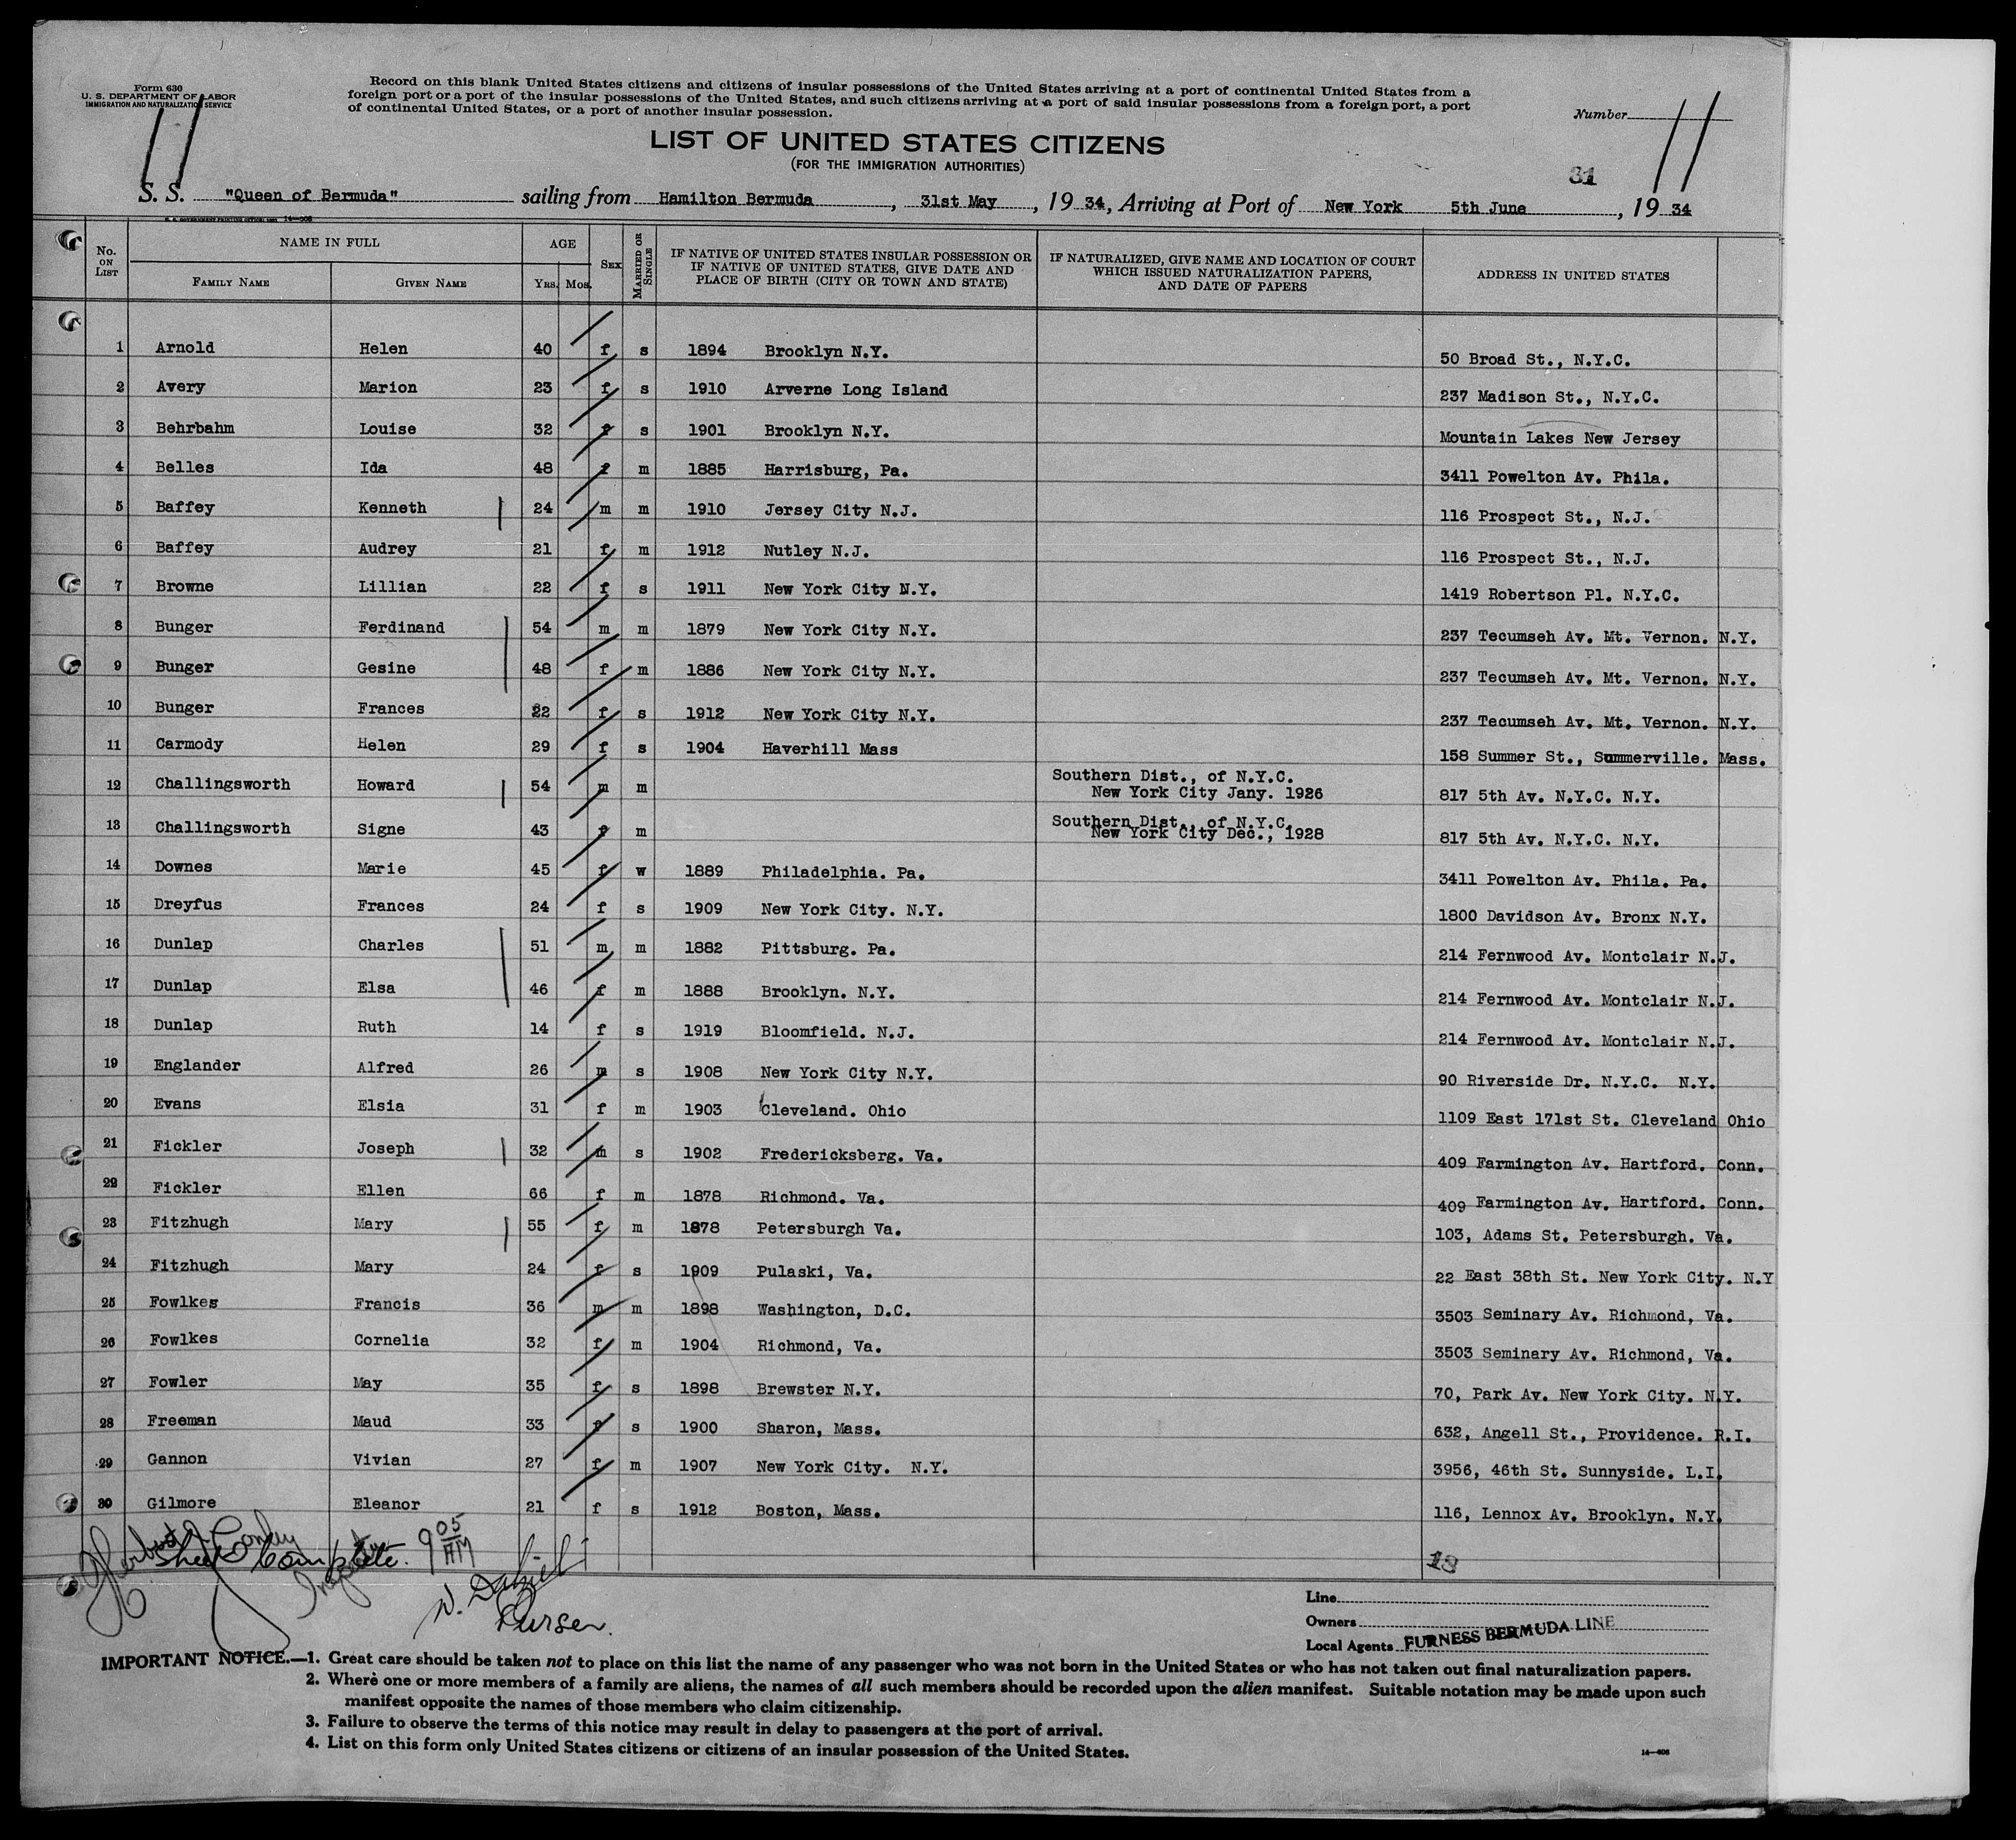 Form 630
U. S. DEPARTMENT OF LABOR
IMMIGRATION AND NATURALIZATION SERVICE
Record on this blank United States citizens and citizens of insular possessions of the United States arriving at a port of continental United States from a
foreign port or a port of the insular possessions of the United States, and such citizens arriving at a port of said insular possessions from a foreign port, a port
of continental United States, or a port of another insular possession.
Number
11
11
LIST OF UNITED STATES CITIZENS
(FOR THE IMMIGRATION AUTHORITIES)
31
S. S. "Queen of Bermuda" sailing from Hamilton Bermuda, 31st May, 19 34, Arriving at Port of New York 5th June, 19 34
No. ON LIST NAME IN FULL FAMILY NAME GIVEN NAME AGE YRS. MOS. SEX MARRIED OR SINGLE IF NATIVE OF UNITED STATES INSULAR POSSESSION OR IF NATIVE OF UNITED STATES, GIVE DATE AND PLACE OF BIRTH (CITY OR TOWN AND STATE) IF NATURALIZED, GIVE NAME AND LOCATION OF COURT WHICH ISSUED NATURALIZATION PAPERS, AND DATE OF PAPERS ADDRESS IN UNITED STATES
1 Arnold Helen 40 f s 1894 Brooklyn N.Y. 50 Broad St., N.Y.C.
2 Avery Marion 23 f s 1910 Arverne Long Island 237 Madison St., N.Y.C.
3 Behrbahm Louise 32 f s 1901 Brooklyn N.Y. Mountain Lakes New Jersey
4 Belles Ida 48 f m 1885 Harrisburg, Pa. 3411 Powelton Av. Phila.
5 Baffey Kenneth 24 m m 1910 Jersey City N.J. 116 Prospect St., N.J.
6 Baffey Audrey 21 f m 1912 Nutley N.J. 116 Prospect St., N.J.
7 Browne Lillian 22 f s 1911 New York City N.Y. 1419 Robertson Pl. N.Y.C.
8 Bunger Ferdinand 54 m m 1879 New York City N.Y. 237 Tecumseh Av. Mt. Vernon. N.Y.
9 Bunger Gesine 48 f m 1886 New York City N.Y. 237 Tecumseh Av. Mt. Vernon. N.Y.
10 Bunger Frances 22 f s 1912 New York City N.Y. 237 Tecumseh Av. Mt. Vernon. N.Y.
11 Carmody Helen 29 f s 1904 Haverhill Mass 158 Summer St., Summerville. Mass.
12 Challingsworth Howard 54 m m Southern Dist., of N.Y.C. New York City Jany. 1926 817 5th Av. N.Y.C. N.Y.
13 Challingsworth Signe 43 f m Southern Dist., of N.Y.C. New York City Dec., 1928 817 5th Av. N.Y.C. N.Y.
14 Downes Marie 45 f w 1889 Philadelphia. Pa. 3411 Powelton Av. Phila. Pa.
15 Dreyfus Frances 24 f s 1909 New York City. N.Y. 1800 Davidson Av. Bronx N.Y.
16 Dunlap Charles 51 m m 1882 Pittsburg. Pa. 214 Fernwood Av. Montclair N.J.
17 Dunlap Elsa 46 f m 1888 Brooklyn. N.Y. 214 Fernwood Av. Montclair N.J.
18 Dunlap Ruth 14 f s 1919 Bloomfield. N.J. 214 Fernwood Av. Montclair N.J.
19 Englander Alfred 26 m s 1908 New York City N.Y. 90 Riverside Dr. N.Y.C. N.Y.
20 Evans Elsia 31 f m 1903 Cleveland. Ohio 1109 East 171st St. Cleveland Ohio
21 Fickler Joseph 32 m s 1902 Fredericksberg. Va. 409 Farmington Av. Hartford. Conn.
22 Fickler Ellen 66 f m 1878 Richmond. Va. 409 Farmington Av. Hartford. Conn.
23 Fitzhugh Mary 55 f m 1878 Petersburgh Va. 103, Adams St. Petersburgh. Va.
24 Fitzhugh Mary 24 f s 1909 Pulaski, Va. 22 East 38th St. New York City. N.Y
25 Fowlkes Francis 36 m m 1898 Washington, D.C. 3503 Seminary Av. Richmond, Va.
26 Fowlkes Cornelia 32 f m 1904 Richmond, Va. 3503 Seminary Av. Richmond, Va.
27 Fowler May 35 f s 1898 Brewster N.Y. 70, Park Av. New York City. N.Y.
28 Freeman Maud 33 f s 1900 Sharon, Mass. 632, Angell St., Providence. R.I.
29 Gannon Vivian 27 f m 1907 New York City. N.Y. 3956, 46th St. Sunnyside. L.I.
30 Gilmore Eleanor 21 f s 1912 Boston, Mass. 116, Lennox Av. Brooklyn. N.Y.
Sheet Complete. 9 05 AM
Inspector
Purser.
Line
Owners
Local Agents FURNESS BERMUDA LINE
IMPORTANT NOTICE.—1. Great care should be taken not to place on this list the name of any passenger who was not born in the United States or who has not taken out final naturalization papers.
2. Where one or more members of a family are aliens, the names of all such members should be recorded upon the alien manifest. Suitable notation may be made upon such
manifest opposite the names of those members who claim citizenship.
3. Failure to observe the terms of this notice may result in delay to passengers at the port of arrival.
4. List on this form only United States citizens or citizens of an insular possession of the United States.